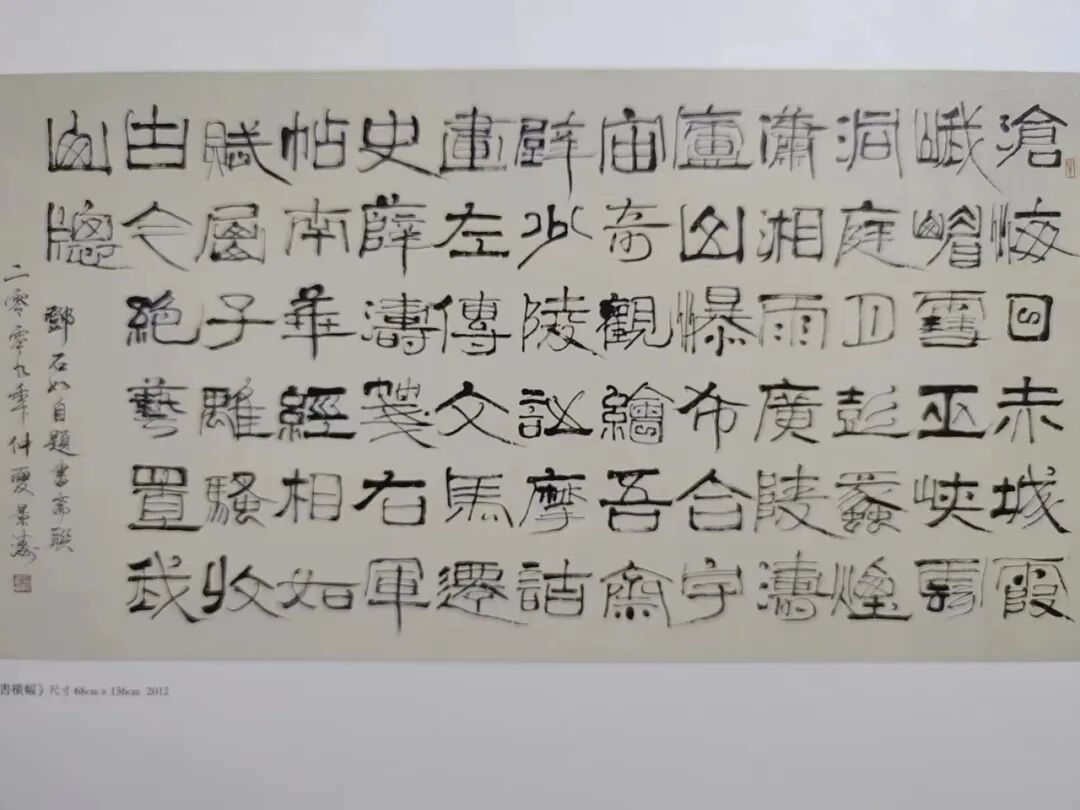 滄海日赤城霞
峨嵋雪巫峽雲
洞庭月彭蠡煙
瀟湘雨廣陵濤
廬山爆布合宇
宙奇觀繪吾齋
壁少陵詩摩詰
畫左傳文馬遷
史薛濤箋右軍
帖南華經相如
賦屈子離騷收
古今絕藝置我
山牕
鄧石如自題書齋聯
二零零九年仲夏景
書橫幅》尺寸 68cm x 136cm 2012